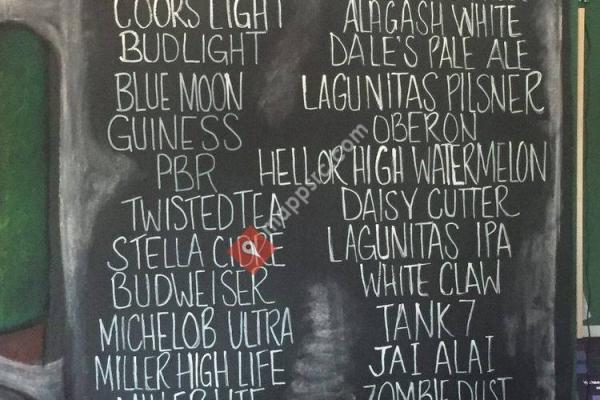 COORS LIGHT
BUDLIGHT
BLUE MOON
GUINESS
PBR
TWISTED TEA
STELLA
BUDWEISER
MICHELOB ULTRA
MILLER HIGH LIFE
MILLER LITE
ALAGASH WHITE
DALE'S PALE ALE
LAGUNITAS PILSNER
OBERON
HELL OR HIGH WATERMELON
DAISY CUTTER
LAGUNITAS IPA
WHITE CLAW
TANK 7
JAI ALAI
ZOMBIE DUST